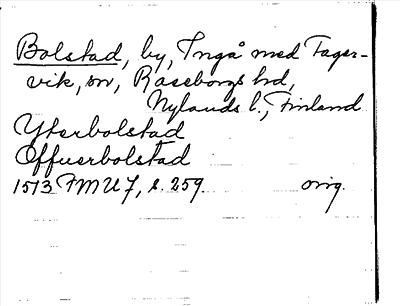 Bolstad, by, Ingå med Fager-
vik, sn, Raseborgs hd,
Nylands l., Finland
Ytterbolstad
Offuerbolstad
1513 FMU 7, s. 259. orig.